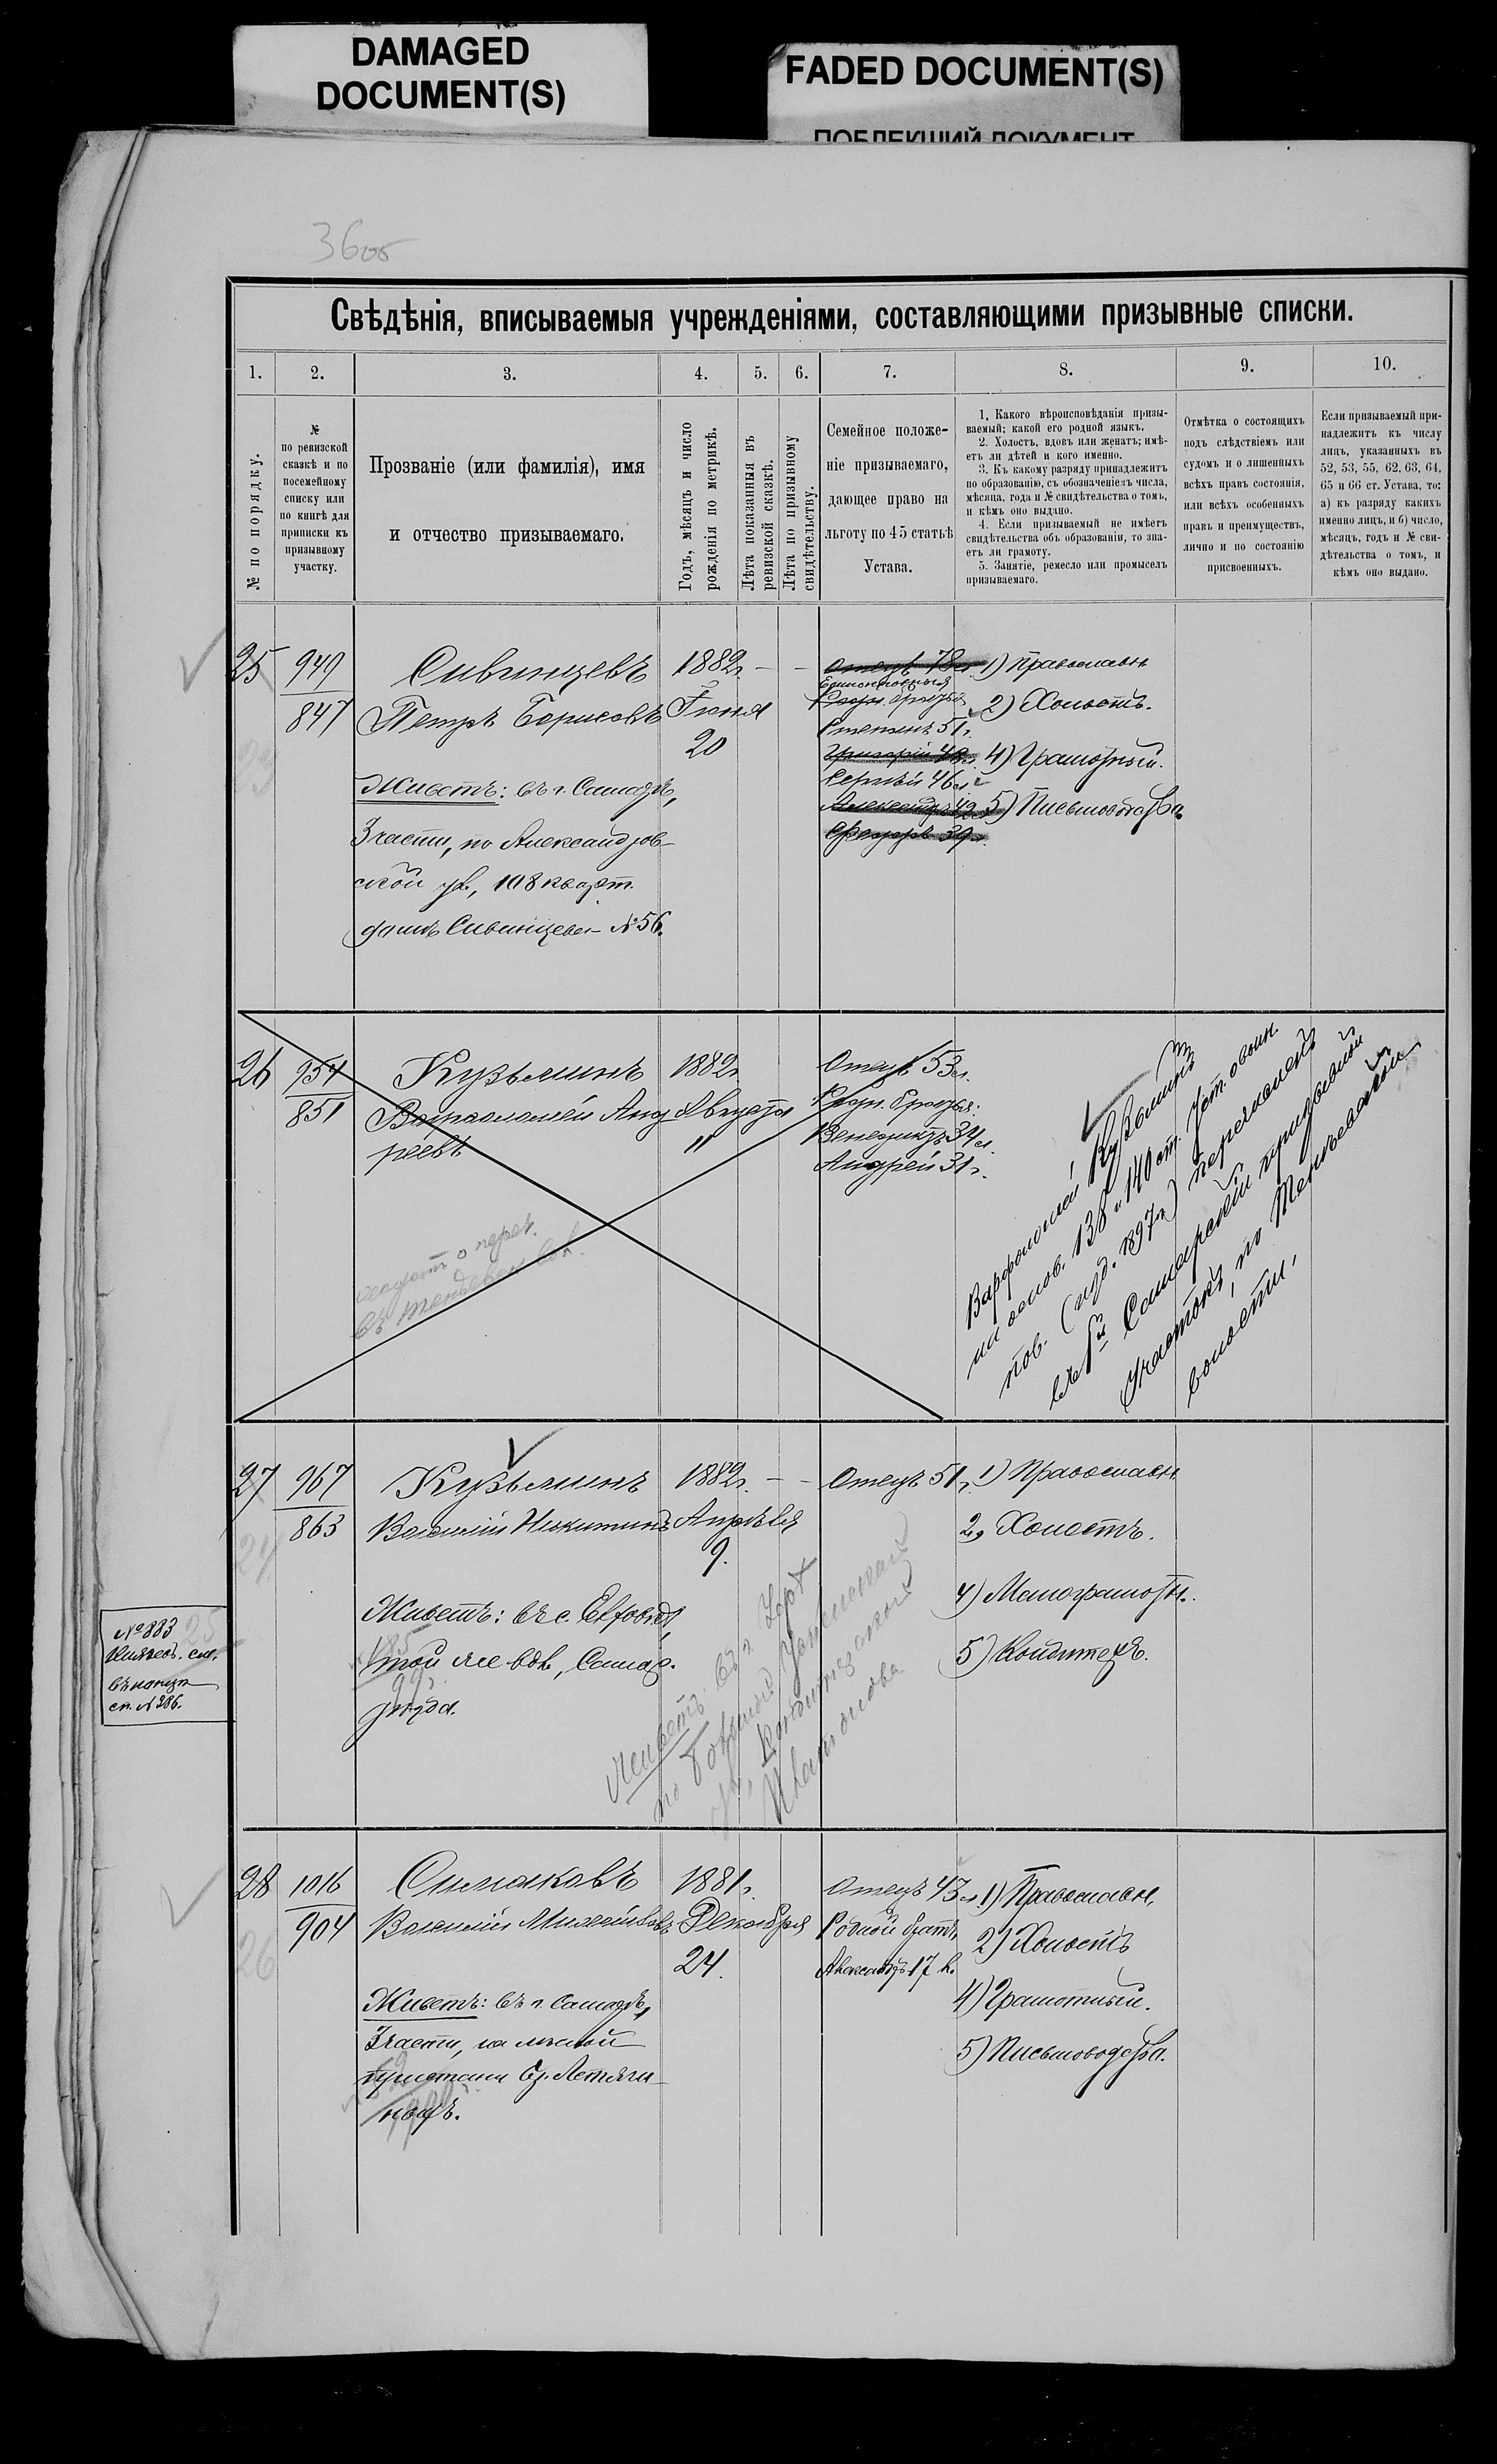 DAMAGED
DOCUMENT(S)
FADED DOCUMENT(S)
ПОБЛЕКШИЙ ДОКУМЕНТ
36об
Свѣдѣнія, вписываемыя учрежденіями, составляющими призывные списки.
1. 2. 3. 4. 5. 6. 7. 8. 9. 10.
№ по порядку.
№
по ревизской
сказкѣ и по
посемейному
списку или
по книгѣ для
приписки къ
призывному
участку.
Прозваніе (или фамилія), имя
и отчество призываемаго.
Годъ, мѣсяцъ и число
рожденія по метрикѣ.
Лѣта показанныя въ
ревизской сказкѣ.
Лѣта по призывному
свидѣтельству.
Семейное положе-
ніе призываемаго,
дающее право на
льготу по 45 статьѣ
Устава.
1. Какого вѣроисповѣданія призы-
ваемый; какой его родной языкъ.
2. Холостъ, вдовъ или женатъ; имѣ-
етъ ли дѣтей и кого именно.
3. Къ какому разряду принадлежитъ
по образованію, съ обозначеніемъ числа,
мѣсяца, года и № свидѣтельства о томъ,
и кѣмъ оно выдано.
4. Если призываемый не имѣетъ
свидѣтельства объ образованіи, то зна-
етъ ли грамоту.
5. Занятіе, ремесло или промыселъ
призываемаго.
Отмѣтка о состоящихъ
подъ слѣдствіемъ или
судомъ и о лишенныхъ
всѣхъ правъ состоянія,
или всѣхъ особенныхъ
правъ и преимуществъ,
лично и по состоянію
присвоенныхъ.
Если призываемый при-
надлежитъ къ числу
лицъ, указанныхъ въ
52, 53, 55, 62, 63, 64,
65 и 66 ст. Устава, то:
а) къ разряду какихъ
именно лицъ, и б) число,
мѣсяцъ, годъ и № сви-
дѣтельства о томъ, и
кѣмъ оно выдано.
25
949
847
Сивинцевъ
Петръ Борисовъ
Живетъ: въ г. Самарѣ,
3 части, по Александров-
ской ул., 108 кварт.
домъ Сивинцева № 56.
1882 г.
Іюня
20
Отецъ 78 л.
Единокровныя
Родн. братья
Степанъ 51 г.
Григорій 48 л.
Сергѣй 46 л.
Александръ 42
Ѳедоръ 39 л.
1) Православн
2) Холостъ.
4) Грамотный.
5) Письмоводства
26
954
851
Кузьминъ
Варѳоломей Анд
реевъ
1882 г.
Августа
"
Отецъ 53 л.
Родн. братья:
Венедиктъ 34 л.
Андрей 31 г.
Варфоломей Кузьминъ
на основ. 138 и 140 ст. Уст. о воин.
пов. (изд. 1897 г.) перечисленъ
въ 1й Самарскій призывной
участокъ, по
волости.
27
967
863
Кузьминъ
Василій Никитинъ
той же вол., Самар.
уѣзда.
1882 г.
Апрѣля
9.
Отецъ 51 г.
1) Православн
2, Холостъ.
4) Малограмотн.
5) Кондитеръ.
№ 883
сп. № 286.
Живетъ
28
1016
904
Симаковъ
Василій Михайловъ
Живетъ: въ г. Самарѣ,
3 части, на лѣсной
пристани бр. Летяги-
ныхъ.
1881 г.
Декабря
24.
Отецъ 43 л.
Родной братъ
Александръ 17 л.
1) Православн.
2) Холостъ
4) Грамотный.
5) Письмоводства.